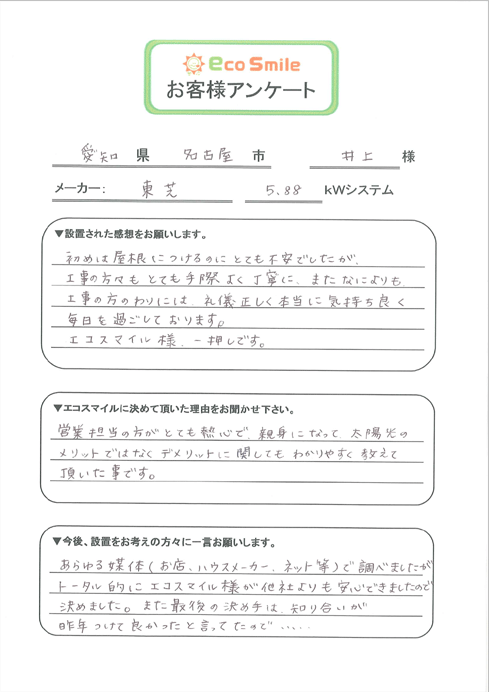 eco Smile
お客様アンケート
愛知 県 名古屋 市 井上 様
メーカー: 東芝 5.88 kWシステム
▼設置された感想をお願いします。
初めは屋根につけるのにとても不安でしたが、
工事の方々もとても手際よく丁寧に、またなによりも、
工事の方のわりには、礼儀正しく本当に気持ち良く
毎日を過ごしております。
エコスマイル様、一押しです。
▼エコスマイルに決めて頂いた理由をお聞かせ下さい。
営業担当の方がとても熱心で、親身になって、太陽光の
メリットではなくデメリットに関してもわかりやすく教えて
頂いた事です。
▼今後、設置をお考えの方々に一言お願いします。
あらゆる媒体(お店、ハウスメーカー、ネット等)で調べましたが
トータル的にエコスマイル様が他社よりも安心できましたので
決めました。また最後の決め手は、知り合いが
昨年つけて良かったと言ってたので・・・・・